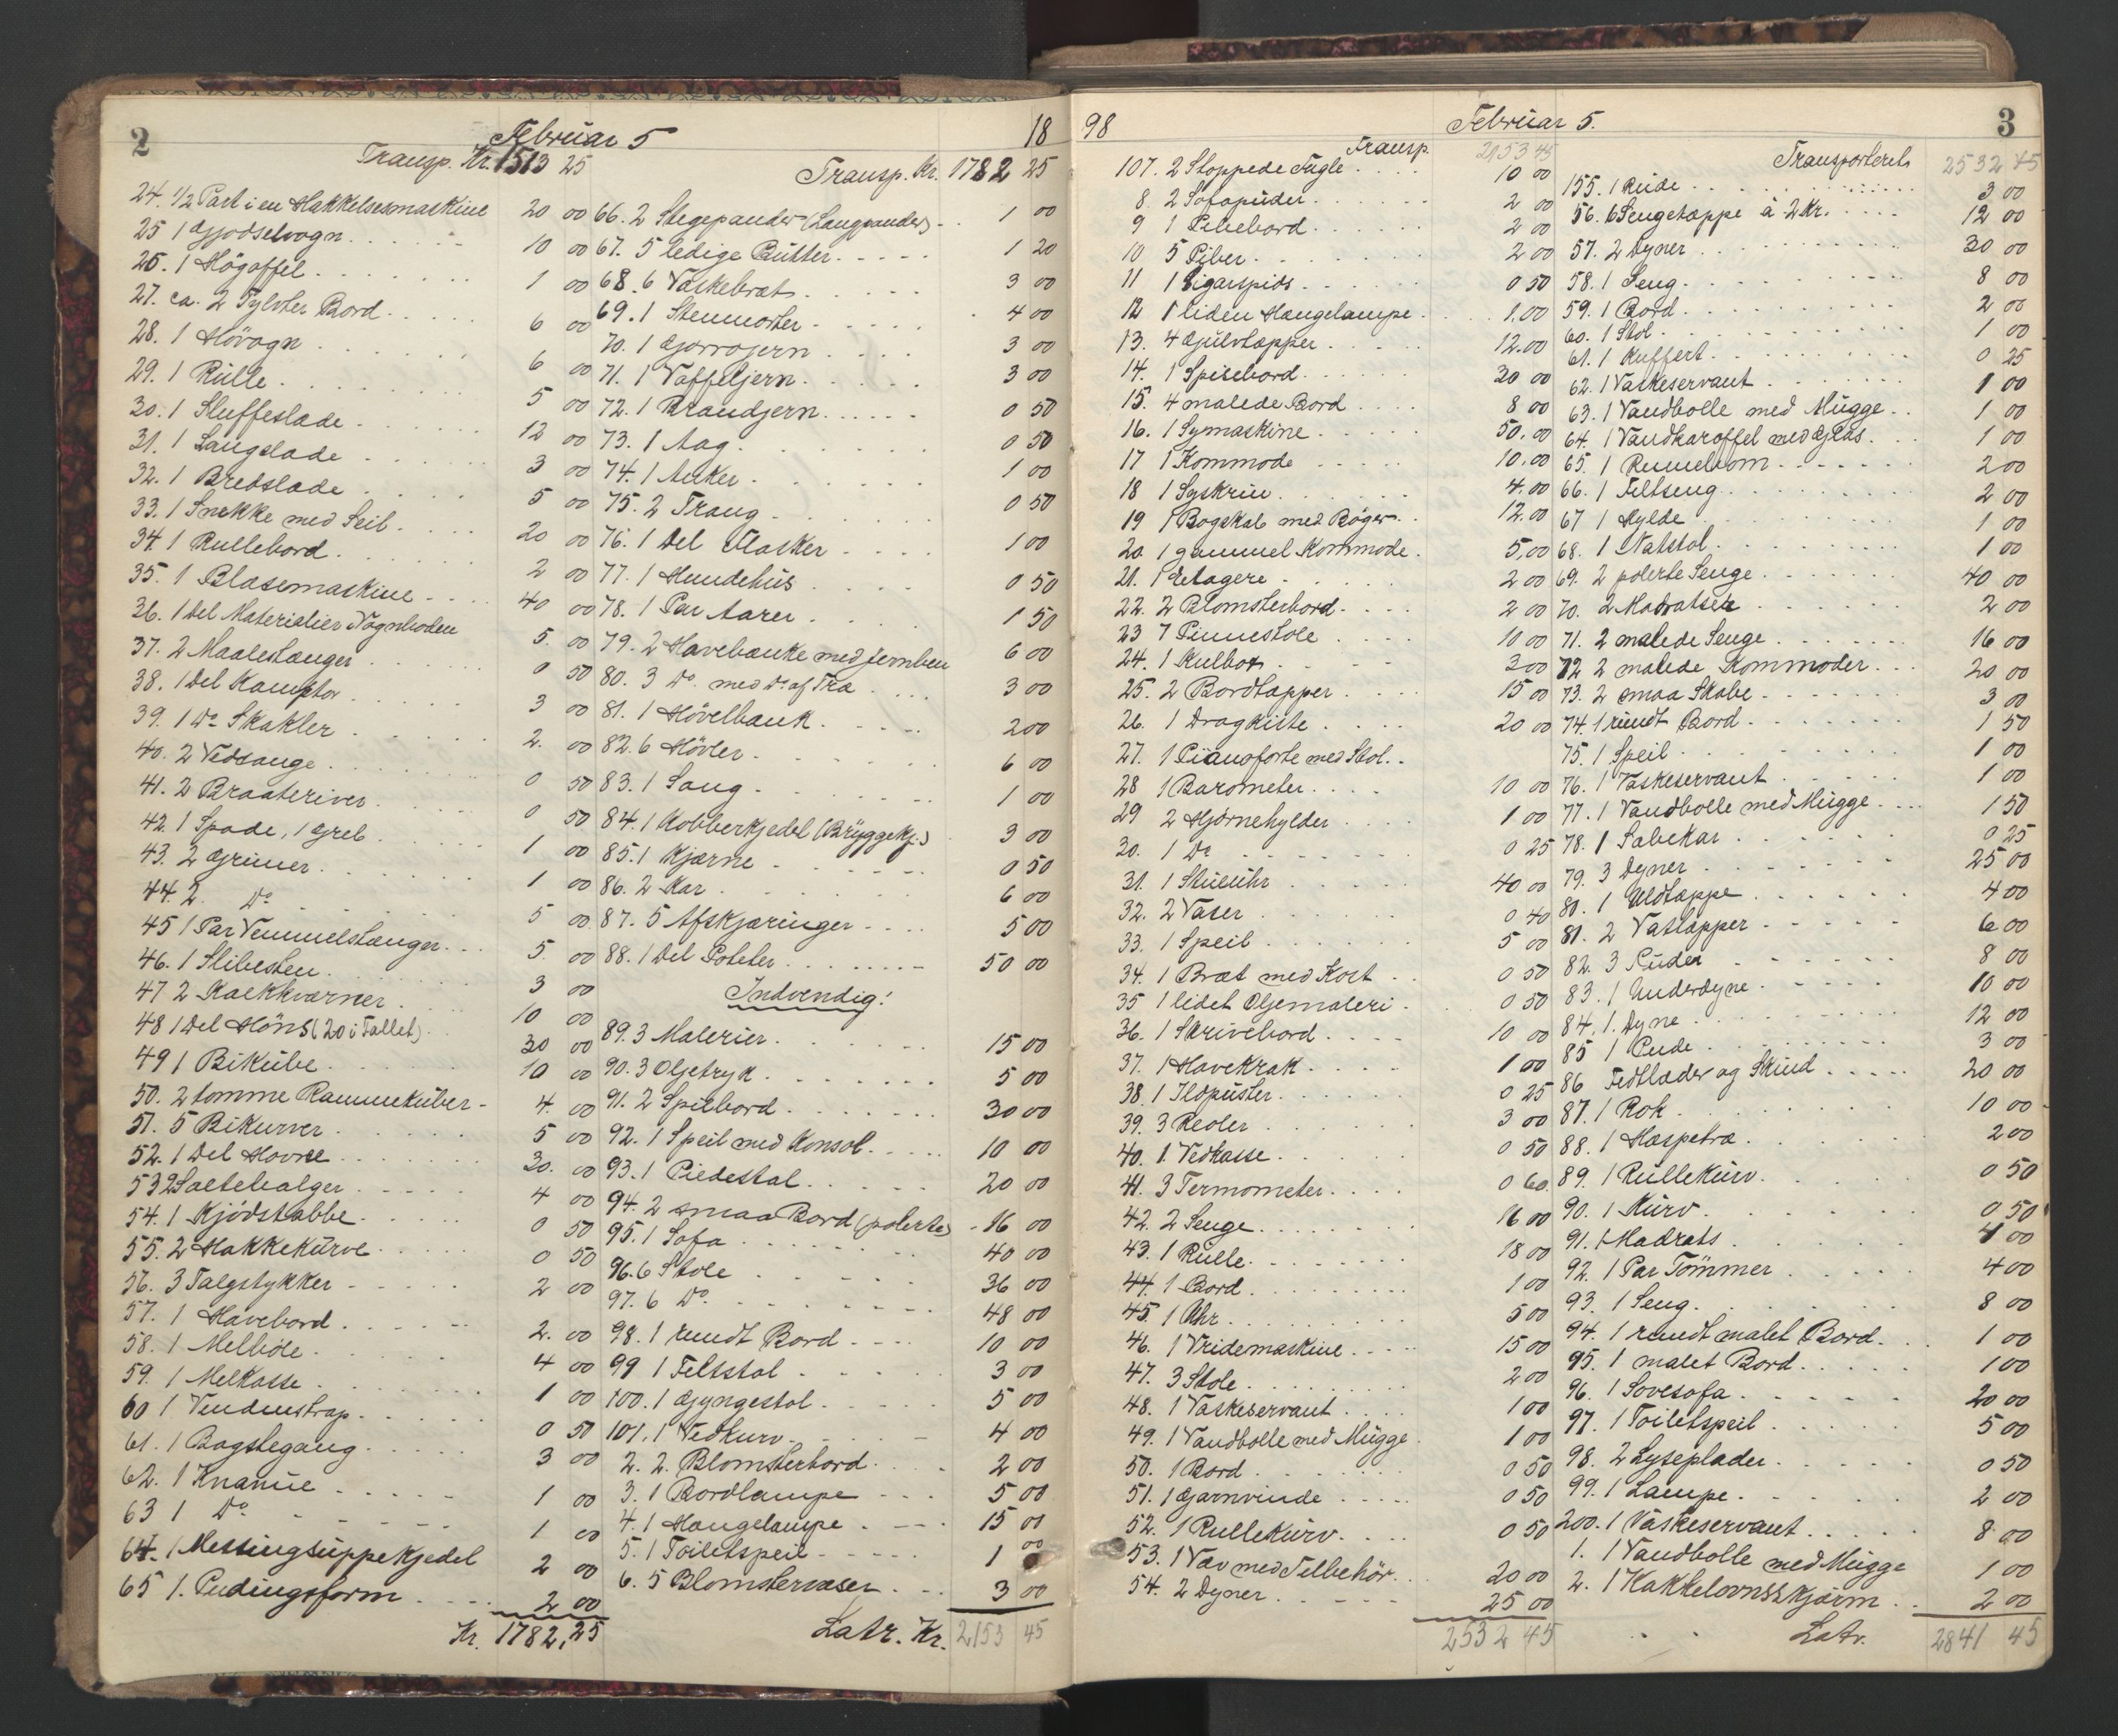 2
Februar 5
18
Transp. Kr. 1513 25
24. 1/2 Part i en Hakkelsesmaskine 20 00
25 1 Gjødselvogn 10 00
26. 1 Høgaffel 1 00
27. ca. 2 Tylvter Bord 6 00
28. 1 Høvogn 6 00
29. 1 Rulle 5 00
30. 1 Sluffeslade 12 00
31. 1 Langslade 3 00
32. 1 Bredslade 5 00
33. 1 Snekke med Seil 20 00
34. 1 Rullebord 2 00
35. 1 Blasemaskine 40 00
36. 1 Del Materialier Vognboden 5. 00
37. 2 Maalestænger 0 50
38. 1 Del 3 00
39. 1 Do Skakler 2. 00
40. 2 Vedsauge 0 50
41. 2 Braateriver 0 50
42. 1 Spade, 1 Greb 1 00
43. 2 Grimer 1 00
44. 2 Do 5 00
45 1 Par Vemmelstænger 5. 00
46. 1 Slibesten 3 00
47 2 10 00
48 1 Del Høns (20 i Tallet) 30 00
49 1 Bikube 10 00
50. 2 tomme Rammekuber 4. 00
51. 5 Bikurver 5 00
52. 1 Del Havre 30. 00
53 2 Saltebalger 4 00
54. 1 Kjødstabbe 0 50
55. 2 Hakkekurve 0 50
56. 3 Talgstykker 2 00
57. 1 Havebord 2. 00
58. 1 4 00
59. 1 Melkasse 1 00
60 1 0 50
61. 1 Bogstegang 3 00
62. 1 1 00
63 1 Do 1 00
64. 1 Messingsuppekjedel 2 00
65 1. Pudingsform 2 00
Kr. 1782,25
Transp. Kr. 1782 25
66. 2 Stegepander (Langpander) 1 00
67. 5 ledige Bütter 1 20
68. 6 Vaskebræt 3 00
69. 1 Stenmorter 4 00
70. 1 Gorrojern 3 00
71. 1 Vaffeljern 3 00
72. 1 Brandjern 0 50
73. 1 Aag 0 50
74. 1 Anker 1 00
75. 2 Traug 0 50
76. 1 Del Flasker 1 00
77. 1 Hundehüs 0 50
78. 1 Par Aarer 1 50
79. 2 Havebænke med jernben 6 00
80. 3 Do. med Do af Træ 3 00
81. 1 Høvelbænk 2 00
82. 6 Høvler 6 00
83. 1 Saug 1 00
84. 1 Kobberkjedel (Bryggekj.) 3 00
85. 1 Kjærne 0 50
86. 2 Kar 6 00
87. 5 Afskjæringer 5 00
88. 1 Del Poteter 50 00
Indvendig:
89. 3 Malerier 15 00
90. 3 Oljetryk 5 00
91. 2 Spilbord 30 00
92. 1 Speil med Konsol 10 00
93. 1 Piedestal 20 00
94. 2 smaa Bord (polerte) 16 00
95. 1 Sofa 40 00
96. 6 Stole 36 00
97. 6 Do. 48 00
98. 1 rundt Bord 10 00
99 1 Feltstol 3 00
100. 1 Gyngestol 5 00
101. 1 Vedkurv 4 00
2. 2. Blomsterbord 2 00
3. 1 Bordlampe 5 00
4. 1 Hængelampe 15 00
5. 1 Toiletspeil 1 00
6. 5 Blomstervaser 3 00
Latr. Kr. 2153 45
98
Februar 5.
3
Transp. 2153 45
107. 2 Stoppede Fugle 10 00
8. 2 Sofapuder 2 00
9 1 Pibebord 2 00
10 5 Piber 2 00
11 1 Sigarspids 0 50
12 1 liden Hængelampe 1.00
13. 4 Gulvtæpper 12.00
14. 1 Spisebord 30 00
15. 4 malede Bord 8 00
16. 1 Symaskine 50.00
17 1 Kommode 10.00
18 1 Syskrin 4.00
19 1 Bogskab med Bøger 12.00
20 1 gammel Kommode 5,00
21. 1 Etagere 2 00
22. 2 Blomsterbord 2 00
23 7 Pinnestole 10 00
24. 1 Kulbox 3 00
25. 2 Bordtæpper 15 00
26. 1 Dragkiste 20 00
27. 1 Pianoforte med Stol
28 1 Barometer 10 00
29 2 Hjørnehylder 1 00
30. 1 Do 0 25
31. 1 Stueuhr 40 00
32. 2 Vaser 0 40
33. 1 Speil 5 00
34. 1 Bræt med Kort 0 50
35 1 lidet Oljemaleri 0 50
36. 1 Skrivebord 10 00
37. 1 Havekrak 1 00
38. 1 Ildpuster 0 25
39. 3 Reoler 3 00
40. 1. Vedkasse 0 50
41. 3 Termometer 0 60.
42. 2 Senge 16 00
43. 1 Rulle 18 00
44. 1 Bord 1 00
45. 1 Uhr 5 00
46. 1 Vridemaskine 15 00
47. 3 Stole 2 00
48. 1 Vaskeservant 1 00
49. 1 Vandbolle med Mugge 1 00
50. 1 Bord 0 50
51. 1 Garnvinde 0 50
52. 1 Rullekurv 0 50
53. 1 Væv med Tilbehör 20 00
54. 2 Dyner 25 00
2532 45
Transporterets 2532 45
155. 1 Pude 3 00
56. 6 Sengetæppe à 2 Kr. 12 00
57. 2 Dyner 30 00
58. 1 Seng 8 00
59. 1 Bord 2 00
60. 1 Stol 1 00
61. 1 Kuffert 0 25
62. 1 Vaskeservant 1 00
63. 1 Vandbolle med Mugge 1 00
64. 1 Vandkaroffel med Glas 1 00
65. 1 2 00
66. 1 Feltseng 2 00
67 1 Hylde 1 00
68. 1 Natstol 1 00
69. 2 polerte Senge 40 00
70. 2 Madratser 2 00
71. 2 malede Senge 16 00
72 2 malede Kommoder 20 00
73. 2 smaa Skabe 3 00
74. 1 rundt Bord 1 50
75. 1 Speil 1 00
76. 1 Vaskeservant 1 00
77. 1 Vandbolle med Mugge 1 50
78. 1 Sabekar 0 25
79. 3 Dyner 25 00
80. 1 Uldtæppe 4 00
81. 2 Vattæpper 6 00
82. 3 Puder 8 00
83. 1 Underdyne 10 00
84. 1. Dyne 12 00
85 1 Pude 3 00
86 Fedtlæder og Skind 20 00
87. 1 Rok 10 00
88. 1 Haspetræ 2 00
89. 1 Rullekurv 0 50
90. 1 Kurv 0 50
91. 1 Madrats 4 00
92. 1 Par Tömmer 4 00
93. 1 Seng 8 00
94. 1 rundt malet Bord 1 00
95. 1 malet Bord 1 00
96. 1 Sovesofa 20 00
97. 1 Toiletspeil 5 00
98. 2 Lyseplader 0 50
99. 1 Lampe 2 00
200. 1 Vaskeservant 8 00
1. 1 Vandbolle med Mugge 1 00
2. 1 Kakkelovnsskjærm 2 00
Latr. 2841 45